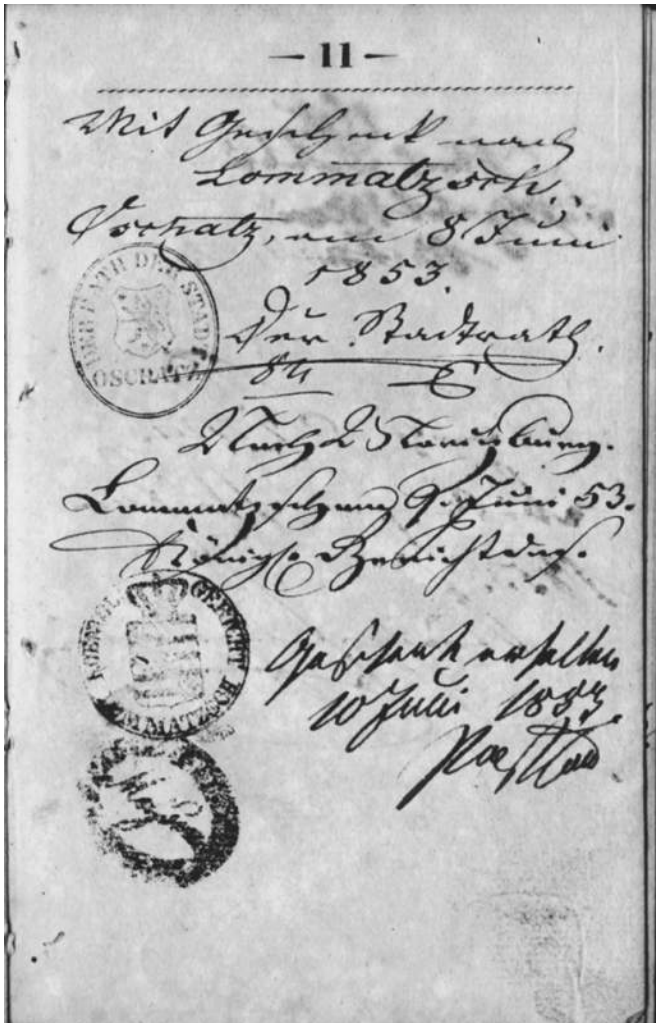 — 11 —
Mit Geschenk nach
Lommatzsch.
Oschatz, am 8 Juni
1853.
DER RATH DER STADT
OSCHATZ
Der Stadtrath.
84
Nach
Lommatzsch am 9. Juni 53.
Königl. Gericht das.
KOENIGL. GERICHT
LOMMATZSCH
Geschenk erhalten
10 Juni 1853.